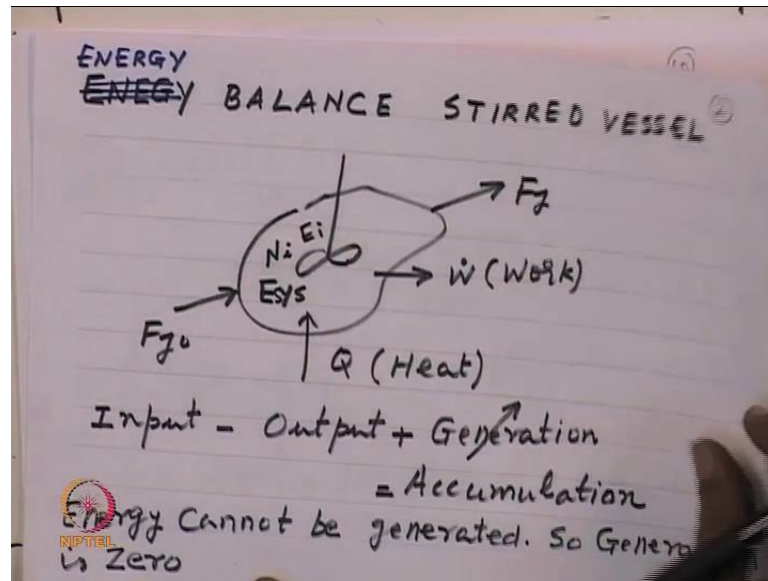 ENERGY
ENEGY BALANCE STIRRED VESSEL
10
2
Fj
Ni Ei
Ẇ (Work)
Esys
Fj0
Q (Heat)
Input - Output + Generation
= Accumulation
Energy cannot be generated. So Genera
is zero
NPTEL